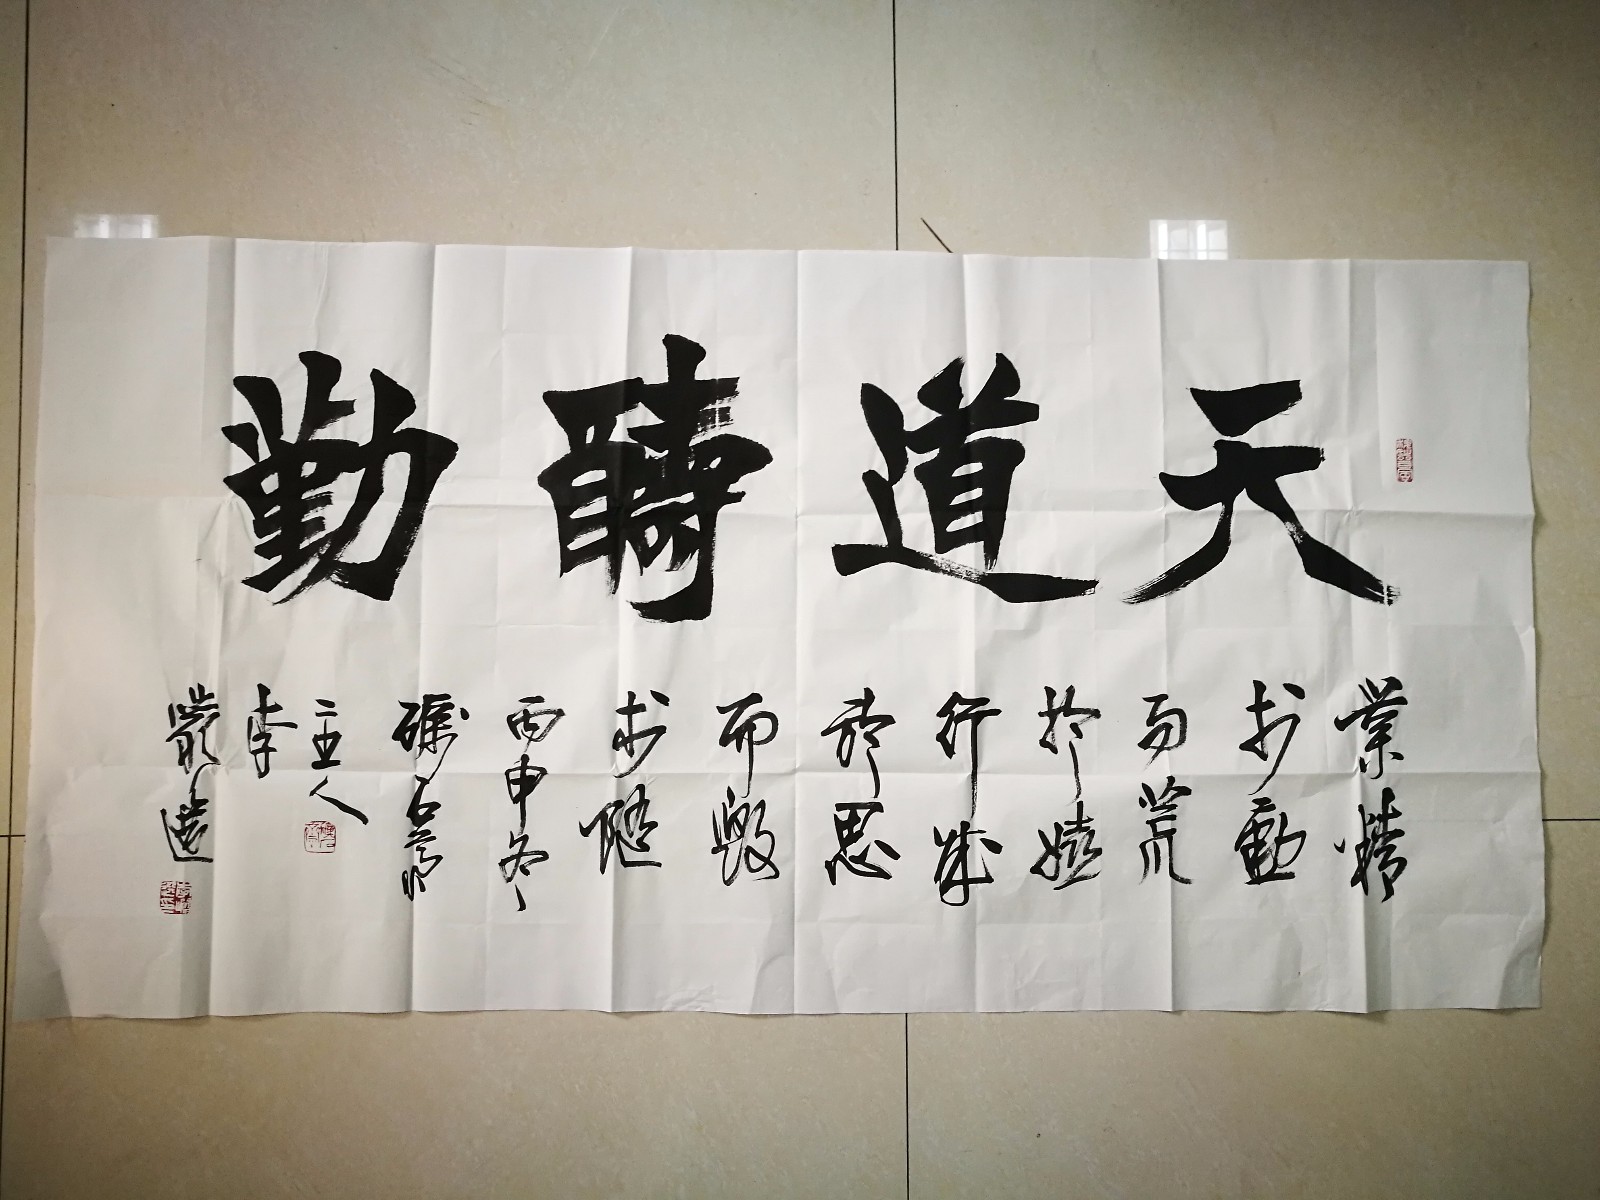 天道醻勤
業精
於勤
而荒
於嬉
行成
於思
而毀
於隨
丙申冬
礪石齋
主人
李